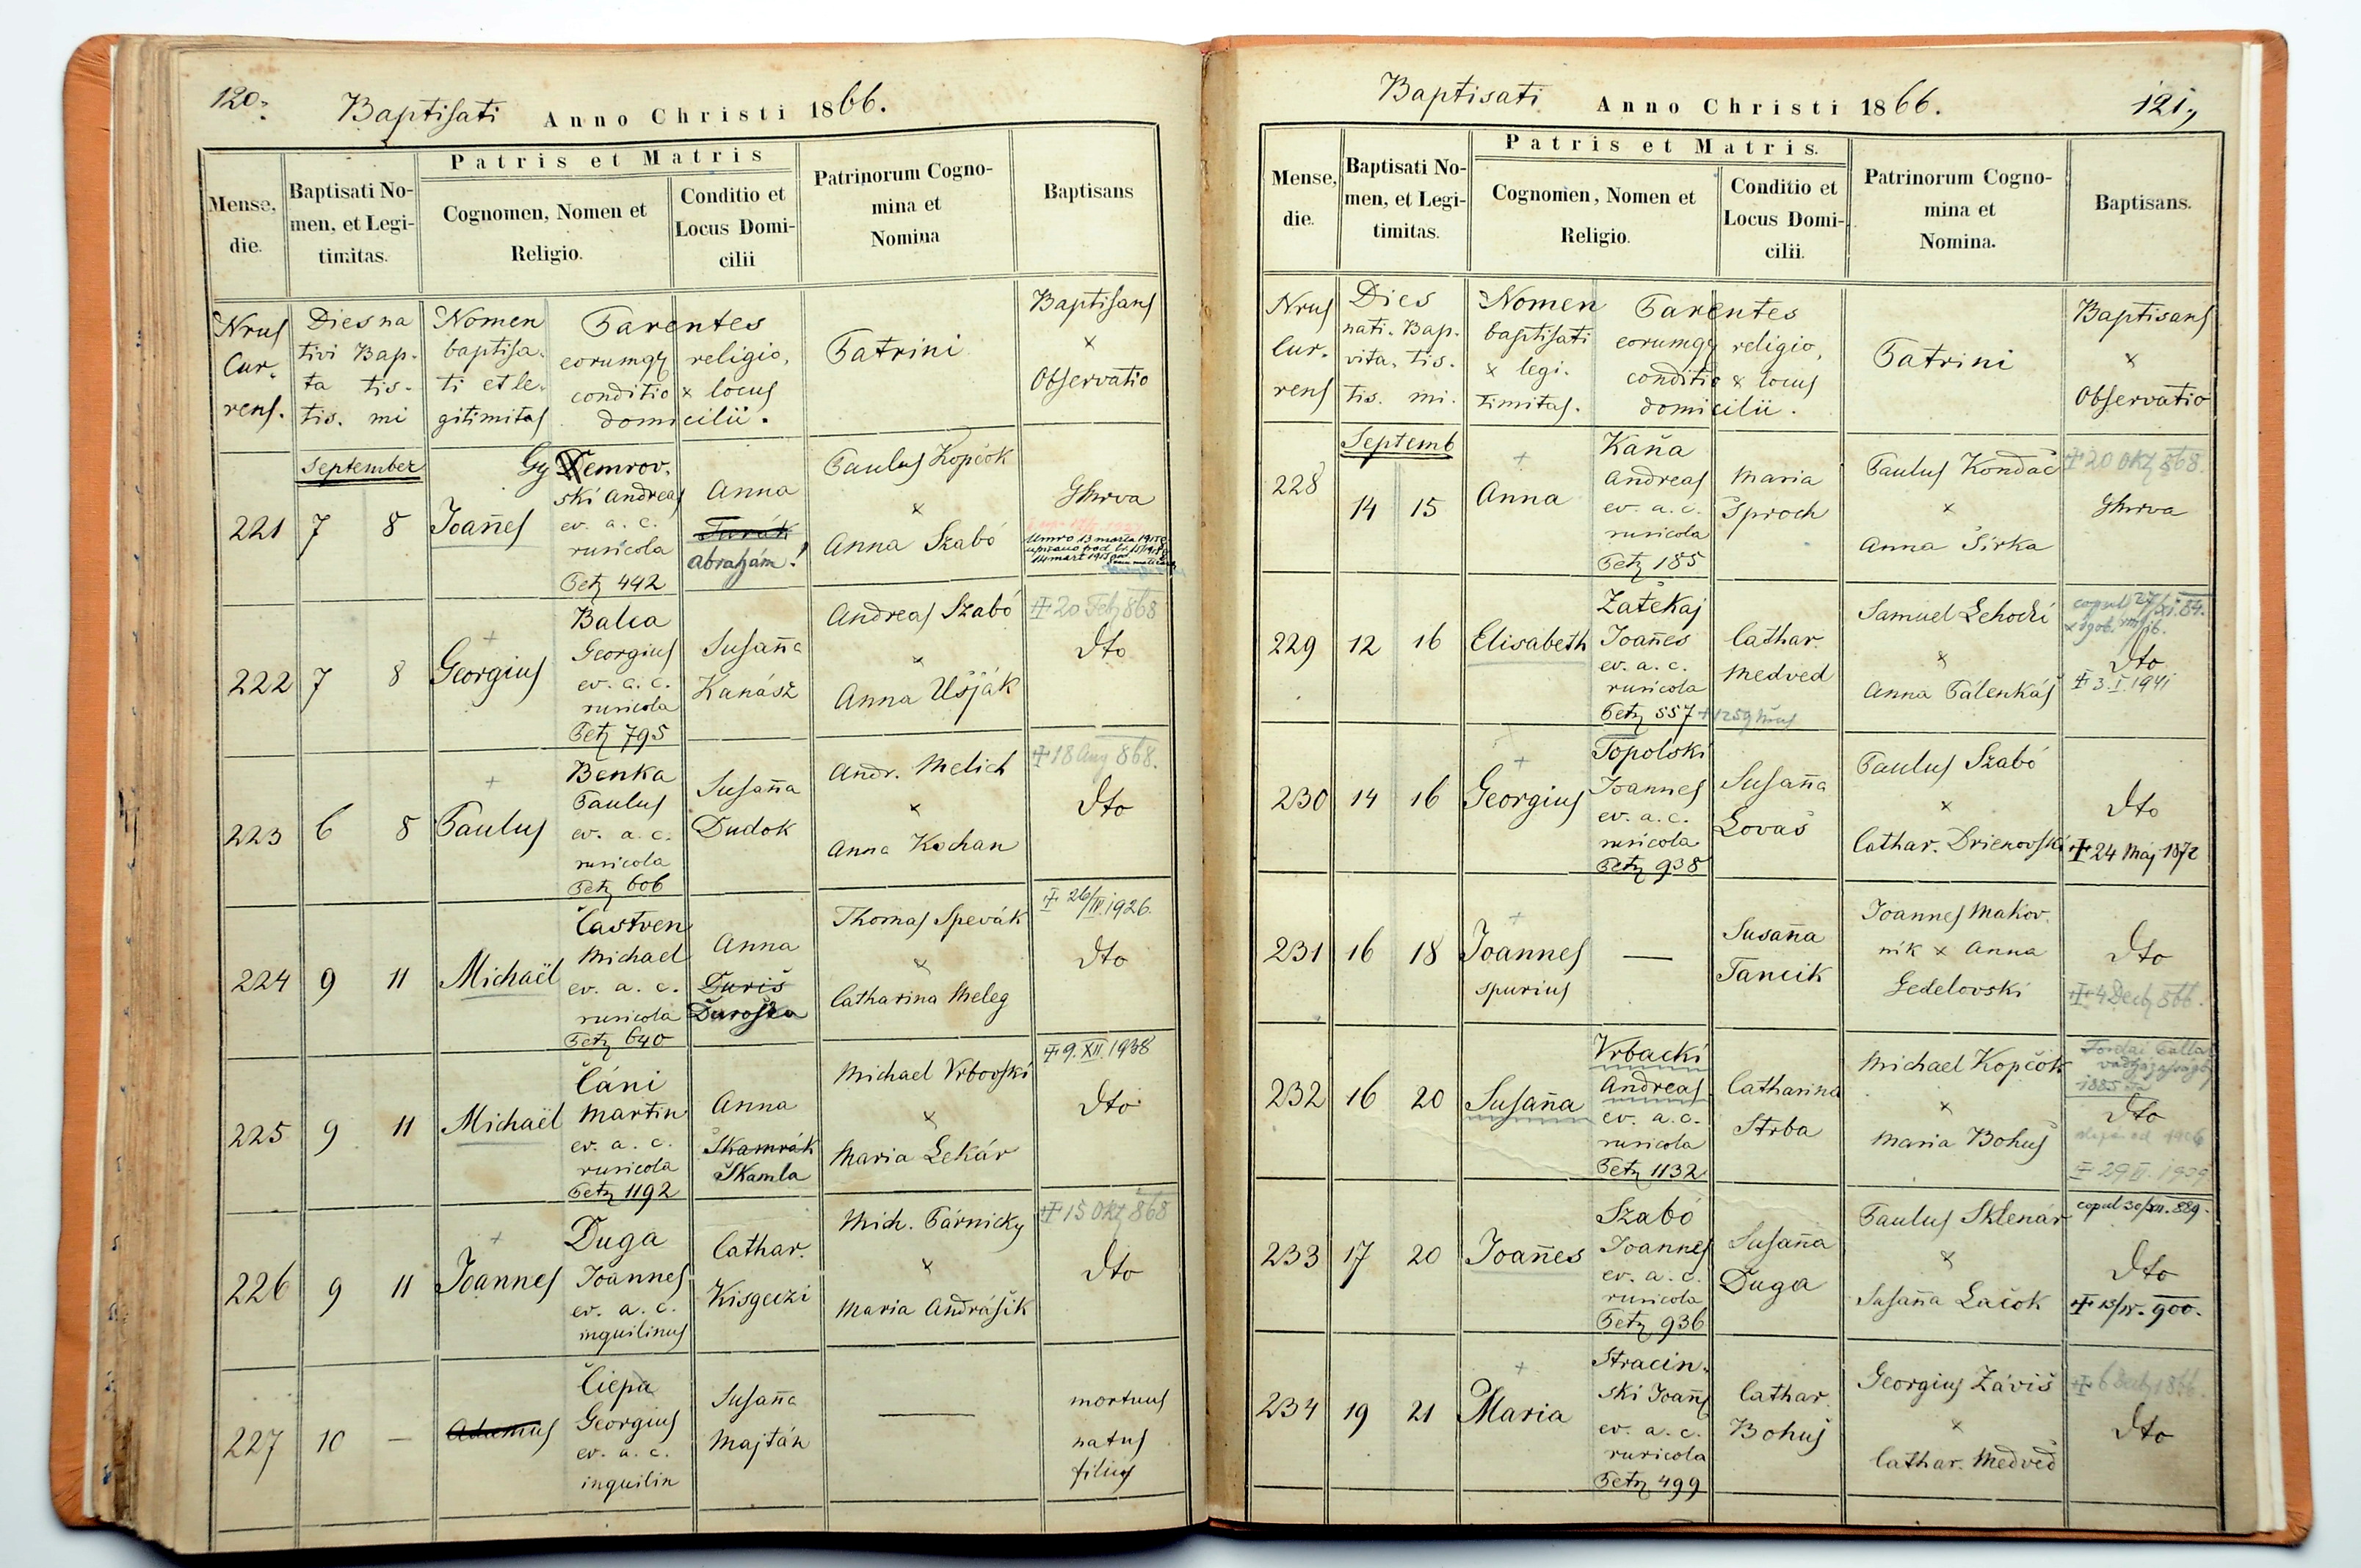 120.
Baptisati Anno Christi 1866.
Patris et Matris
Mense, die.
Baptisati No-
men, et Legi-
timitas.
Cognomen, Nomen et
Religio.
Conditio et
Locus Domi-
cilii
Patrinorum Cogno-
mina et
Nomina
Baptisans
Nrus
Cur.
rens.
Dies na
tivi Bap-
ta tis-
tis. mi
Nomen
baptisa-
ti et le-
gitimitas
Parentes
eorumq religio,
conditio x locus
domicilii.
Patrini
Baptisans
x
Observatio
September
221 7 8 Joañes
Gy Demrov.
ski Andreas
ev. a. c.
ruricola
Petz 442
Anna
Turák
Abrahám!
Paulus Kopčok
x
Anna Szabó
Ghrva
Umro 13 marta 1915
222 7 8 Georgius
Balca
Georgius
ev. a. c.
ruricola
Petz 795
Susaña
Kanász
Andreas Szabó
x
Anna Ušják
‡ 20 Feb 868
Dto
223 6 8 Paulus
Benka
Paulus
ev. a. c.
ruricola
Petz 606
Susaña
Dudok
Andr. Melich
x
Anna Kochan
‡ 18 Aug 868.
Dto
224 9 11 Michaël
Častven
Michael
ev. a. c.
ruricola
Petz 640
Anna
Duriš
Ďuroška
Thomas Spevák
x
Catharina Meleg
‡ 26/IV.1926.
Dto
225 9 11 Michaël
Čáni
Martin
ev. a. c.
ruricola
Petz 1192
Anna
Skamrák
Škamla
Michael Vrbovski
x
Maria Lekár
‡ 9. XII. 1938
Dto
226 9 11 Joannes
Duga
Joannes
ev. a. c.
inquilinus
Cathar.
Kisgeczi
Mich. Párnicky
x
Maria Andrášik
‡ 15 Okt 868
Dto
227 10 — Adamus
Čiepa
Georgius
ev. a. c.
inquilin
Susaña
Majtán
mortuus
natus
filius
Baptisati Anno Christi 1866.
121,
Patris et Matris.
Mense, die.
Baptisati No-
men, et Legi-
timitas.
Cognomen, Nomen et
Religio.
Conditio et
Locus Domi-
cilii.
Patrinorum Cogno-
mina et
Nomina.
Baptisans.
Nrus
Cur.
rens
Dies
nati. Bap.
vita. tis.
tis. mi.
Nomen
baptisati
x legi.
timitas.
Parentes
eorumq religio,
conditio x locus
domicilii.
Patrini
Baptisans
x
Observatio
Septemb
228 14 15 Anna
Kaňa
Andreas
ev. a. c.
ruricola
Petz 185
Maria
Sproch
Paulus Kondač
x
Anna Sirka
‡ 20 Okt 868.
Ghrva
229 12 16 Elisabeth
Zatekaj
Joañes
ev. a. c.
ruricola
Petz 557
Cathar.
Medved
Samuel Lehocki
x
Anna Pálenkáš
copul 27/XI.84.
Dto
‡ 3. I. 1941
230 14 16 Georgius
Topolski
Joannes
ev. a. c.
ruricola
Petz 938
Susaña
Lovaš
Paulus Szabó
x
Cathar. Drienovski
Dto
‡ 24 Maj 1872
231 16 18 Joannes
spurius
—
Susaña
Tancik
Joannes Makov.
nik x Anna
Gedelovski
Dto
‡ 4 Dec 866.
232 16 20 Susaña
Vrbacki
Andreas
ev. a. c.
ruricola
Petz 1132
Catharina
Strba
Michael Kopčok
x
Maria Bohuš
1885
Dto
233 17 20 Joañes
Szabó
Joannes
ev. a. c.
ruricola
Petz 936
Susaña
Duga
Paulus Sklenár
x
Susaña Lačok
copul 30/XII. 889.
Dto
‡ 15/IV. 900.
234 19 21 Maria
Stracin-
ski Joañs
ev. a. c.
ruricola
Petz 499
Cathar.
Bohuš
Georgius Záviš
x
Cathar. Medveď
Dto